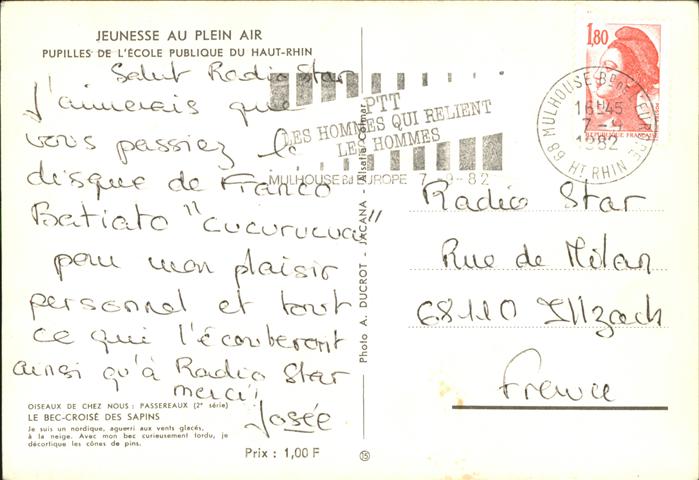 JEUNESSE AU PLEIN AIR
PUPILLES DE L'ÉCOLE PUBLIQUE DU HAUT-RHIN
Salut Radio Star
J'aimerais que
vous passiez le
disque de Franco
Batiato "cucurucucu"
pour mon plaisir
personnel et tout
ce qui l'écouteront
ainsi qu'à Radio Star
merci
Josée
OISEAUX DE CHEZ NOUS : PASSEREAUX (2e série)
LE BEC-CROISÉ DES SAPINS
Je suis un nordique, aguerri aux vents glacés,
à la neige. Avec mon bec curieusement tordu, je
décortique les cônes de pins.
Prix : 1,00 F
Photo A. DUCROT - JACANA Alsatia Colmar
15
PTT
LES HOMMES QUI RELIENT
LES HOMMES
MULHOUSE Bd EUROPE 7-9-82
1,80
REPUBLIQUE FRANCAISE
68 MULHOUSE Bd DE L'EUROPE
16H45
7-9
1982
HT RHIN
Radio Star
Rue de Milan
68110 Illzach
France